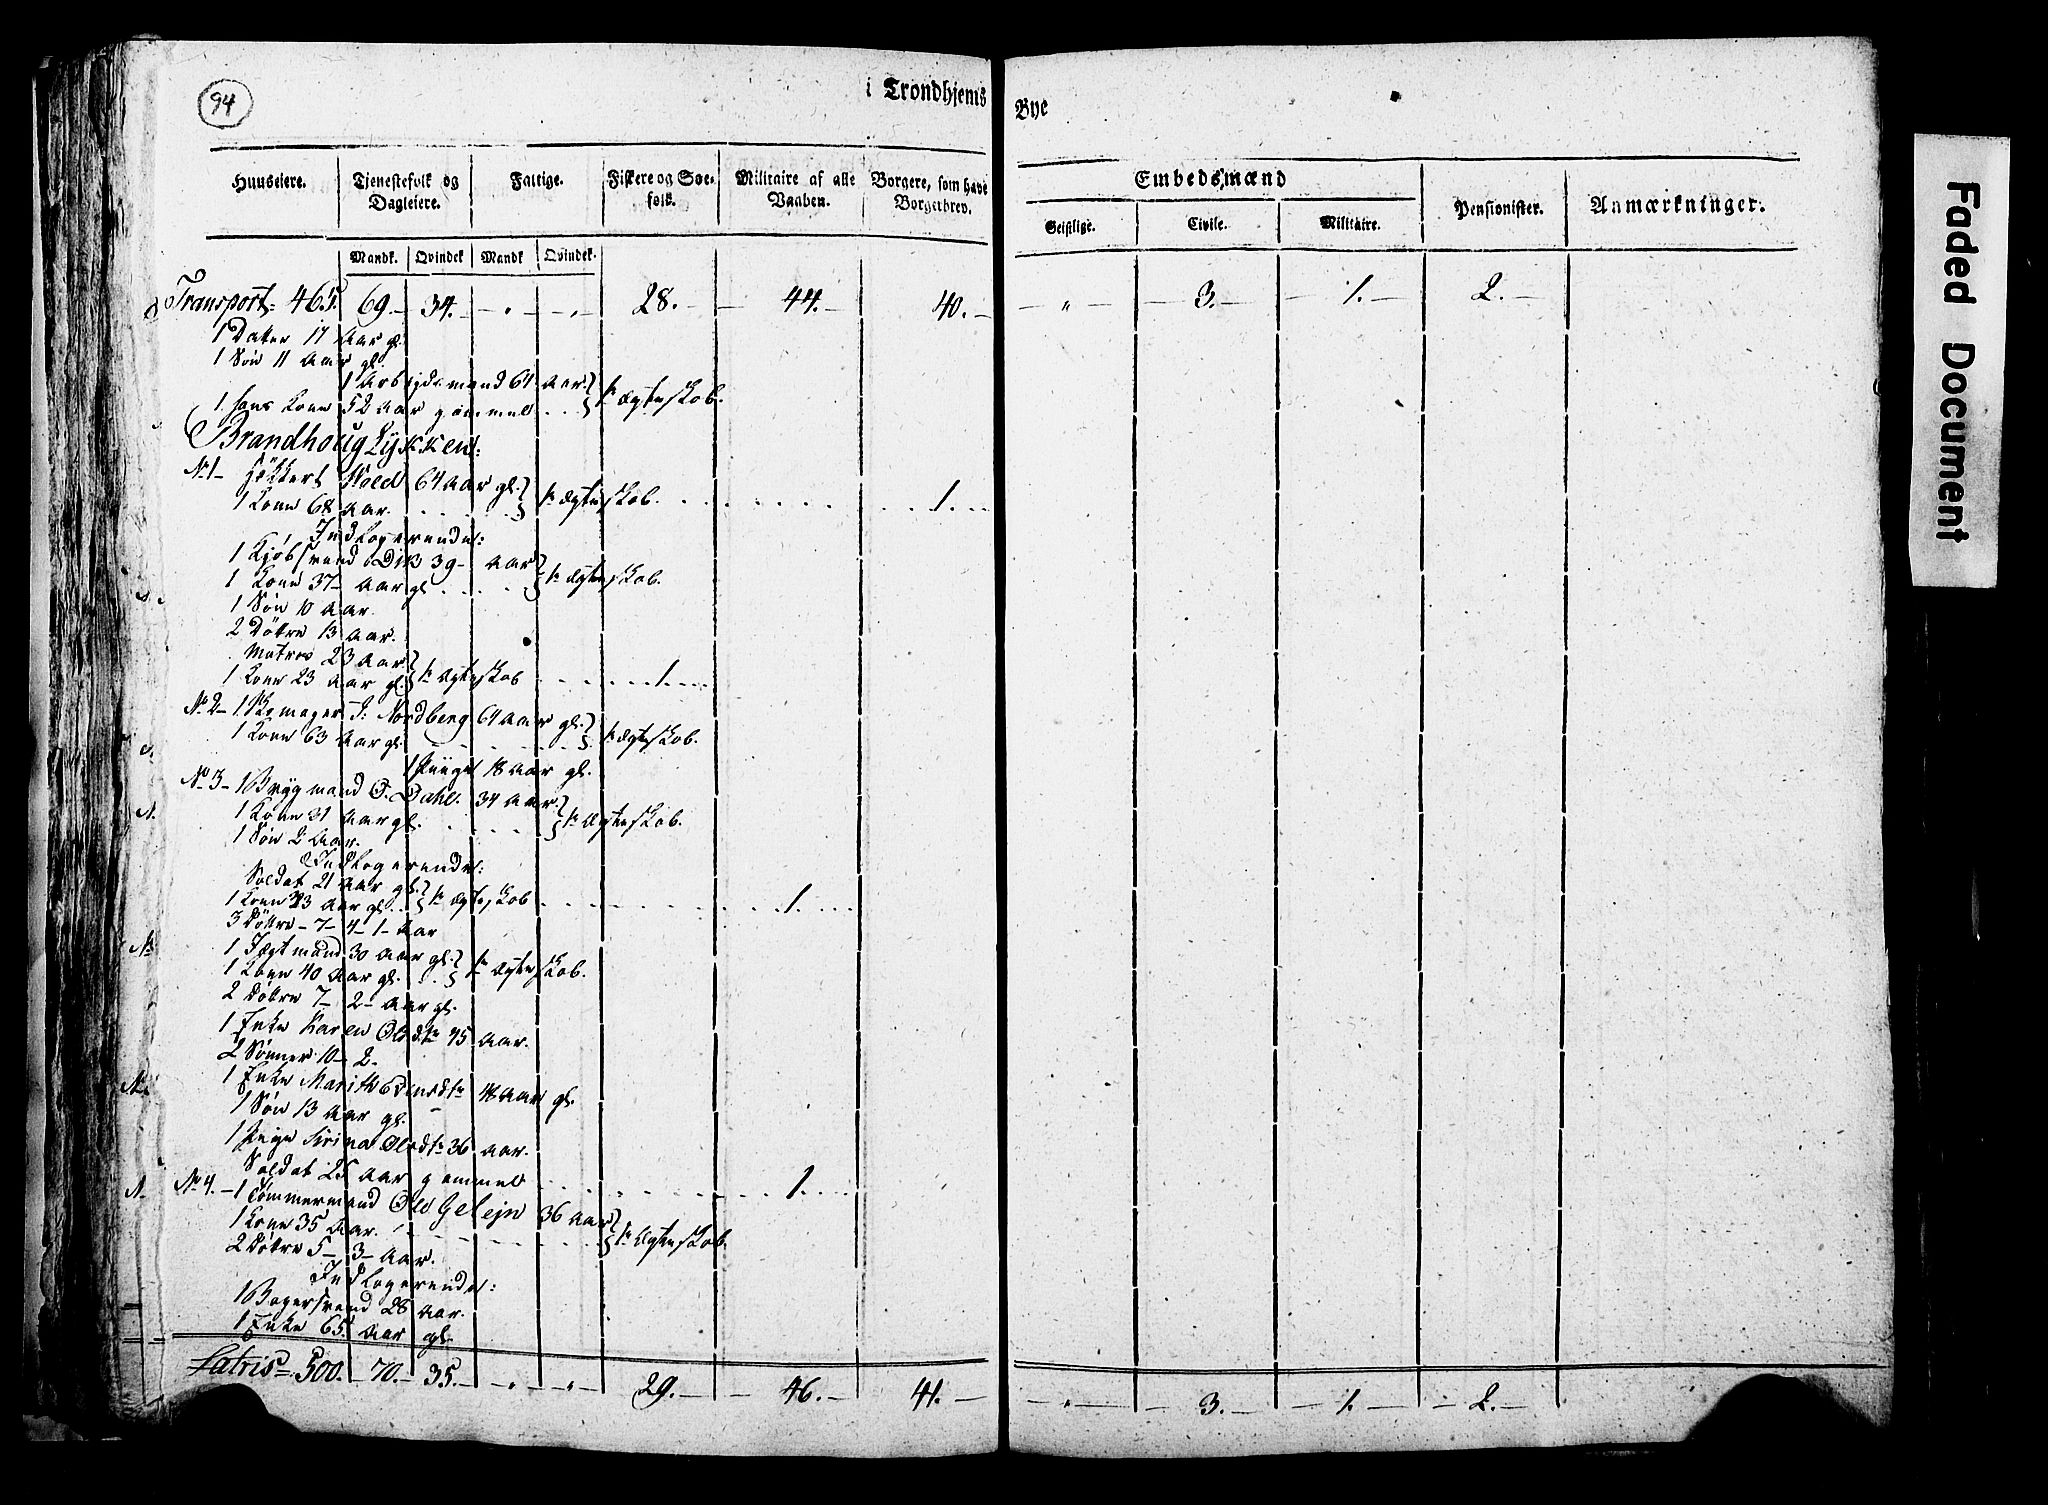 94
i Trondhjems Bye
Huuseiere. Tjenestefolk og Dagleiere. Fattige. Fiskere og Søefolk. Militaire af alle Vaaben. Borgere, som have Borgerbrev. Embedsmænd Pensionister. Anmærkninger.
Geistlige. Civile. Militaire.
Mandk. Qvindek Mandk Qvindek.
Transport 465. 69. 34. 28. 44. 40. 3. 1. 2.
1 Datter 17 Aar gl.
1 Søn 11 Aar gl.
1 Arbejdsmand 64 Aar
1 hans Kone 52 Aar gammel 1ste Ægteskab.
Brandhoug Lykken:
No 1 Wold 64 Aar gl.
1 Kone 68 Aar 1ste Ægteskab. 1.
Indlogerende:
39 Aar
1 Kone 37 Aar gl. 1ste Ægteskab.
1 Søn 10 Aar
2 Døttre 13 Aar.
Matros 23 Aar
1 Kone 23 Aar gl. 1ste Ægteskab 1.
No 2 J: Nordberg 64 Aar gl.
1 Kone 63 Aar gl. 1ste Ægteskab.
1 Piige 18 Aar gl.
No 3 1 Brygmand O. Dahl. 34 Aar
1 Kone 31 Aar gl. 1ste Ægteskab.
1 Søn 2 Aar.
Indlogerende:
Soldat 21 Aar gl.
1 Kone 23 Aar gl. 1ste Ægteskab 1.
3 Døttre 7 4 1 Aar
1 Jægtmand 30 Aar gl.
1 Kone 40 Aar gl. 1ste Ægteskab.
2 Døttre 7 2 Aar gl.
1 Enke Karen 45 Aar.
2 Sønner 10 2
1 Enke Marith Aar gl.
1 Søn 13 Aar gl.
1 Pige 36 Aar.
Soldat 25 Aar gammel 1.
No 4. 1 Tømmermand Ole 36 Aar
1 Kone 35 Aar. 1ste Ægteskab.
2 Døttre 5 3 Aar.
Indlogerende:
1 Bagersvend 28 Aar.
1 Enke 65 Aar gl.
Latris 500. 70. 35. 29. 46. 41. 3. 1. 2.
Faded Document